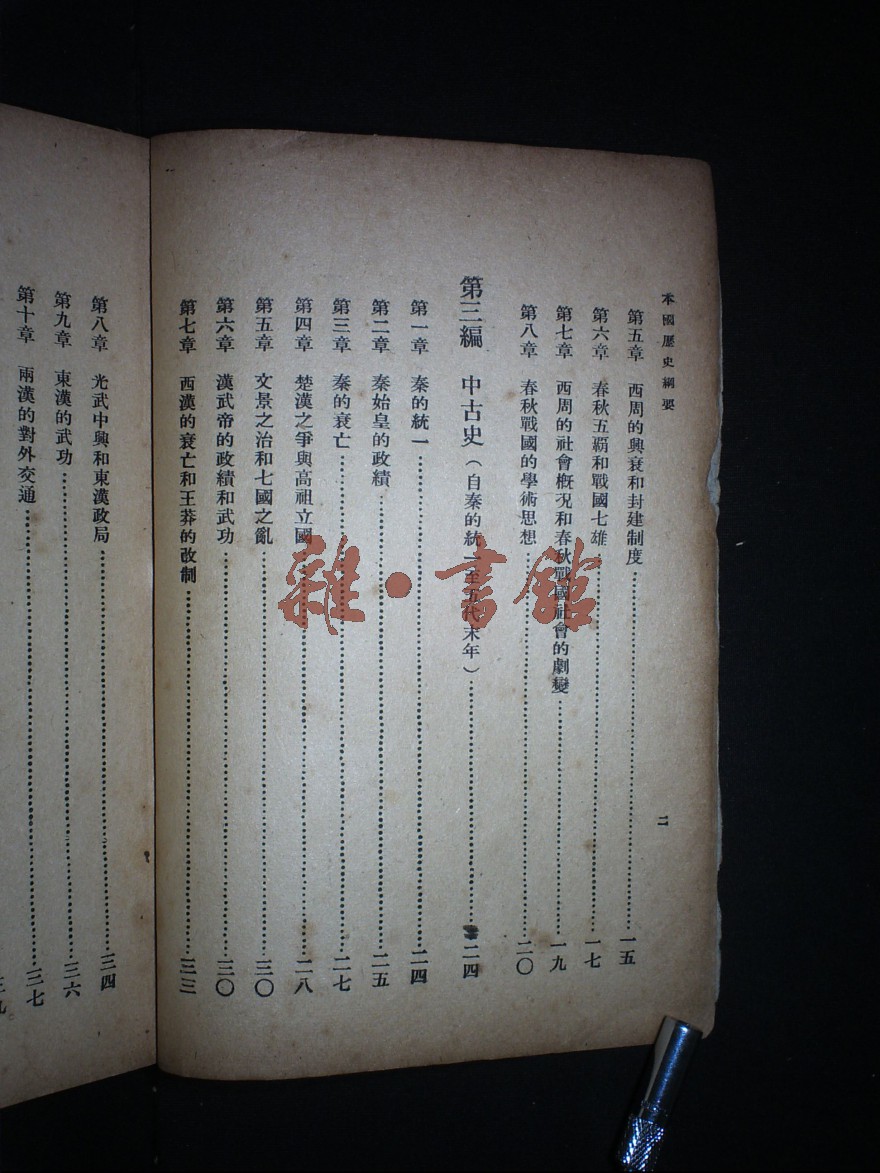 本國歷史綱要
二
第五章 西周的興衰和封建制度……一五
第六章 春秋五覇和戰國七雄……一七
第七章 西周的社會概況和春秋戰國社會的劇變……一九
第八章 春秋戰國的學術思想……二〇
第三編 中古史（自秦的統一至五代末年）……二四
第一章 秦的統一……二四
第二章 秦始皇的政績……二五
第三章 秦的衰亡……二七
第四章 楚漢之爭與高祖立國……二八
第五章 文景之治和七國之亂……三〇
第六章 漢武帝的政績和武功……三〇
第七章 西漢的衰亡和王莽的改制……三三
第八章 光武中興和東漢政局……三四
第九章 東漢的武功……三六
第十章 兩漢的對外交通……三七
三九
雜·書館